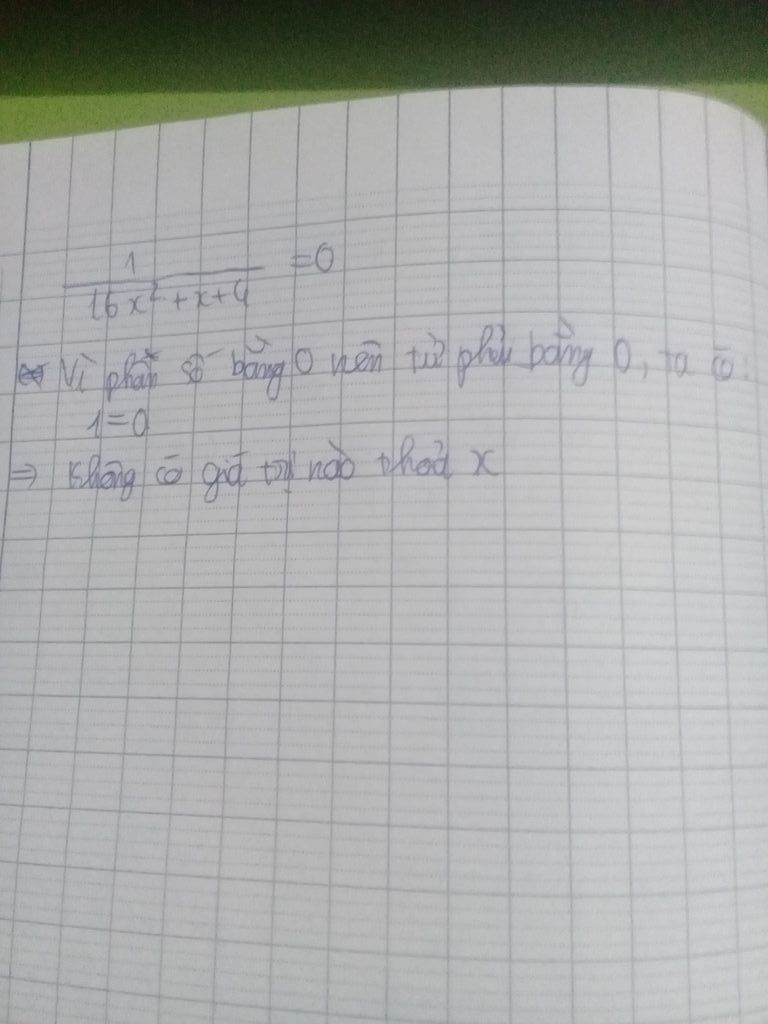 1
16x² + x + 4 = 0
Vì phân số bằng 0 nên tử phải bằng 0, ta có:
1 = 0
⇒ không có giá trị nào thoả x